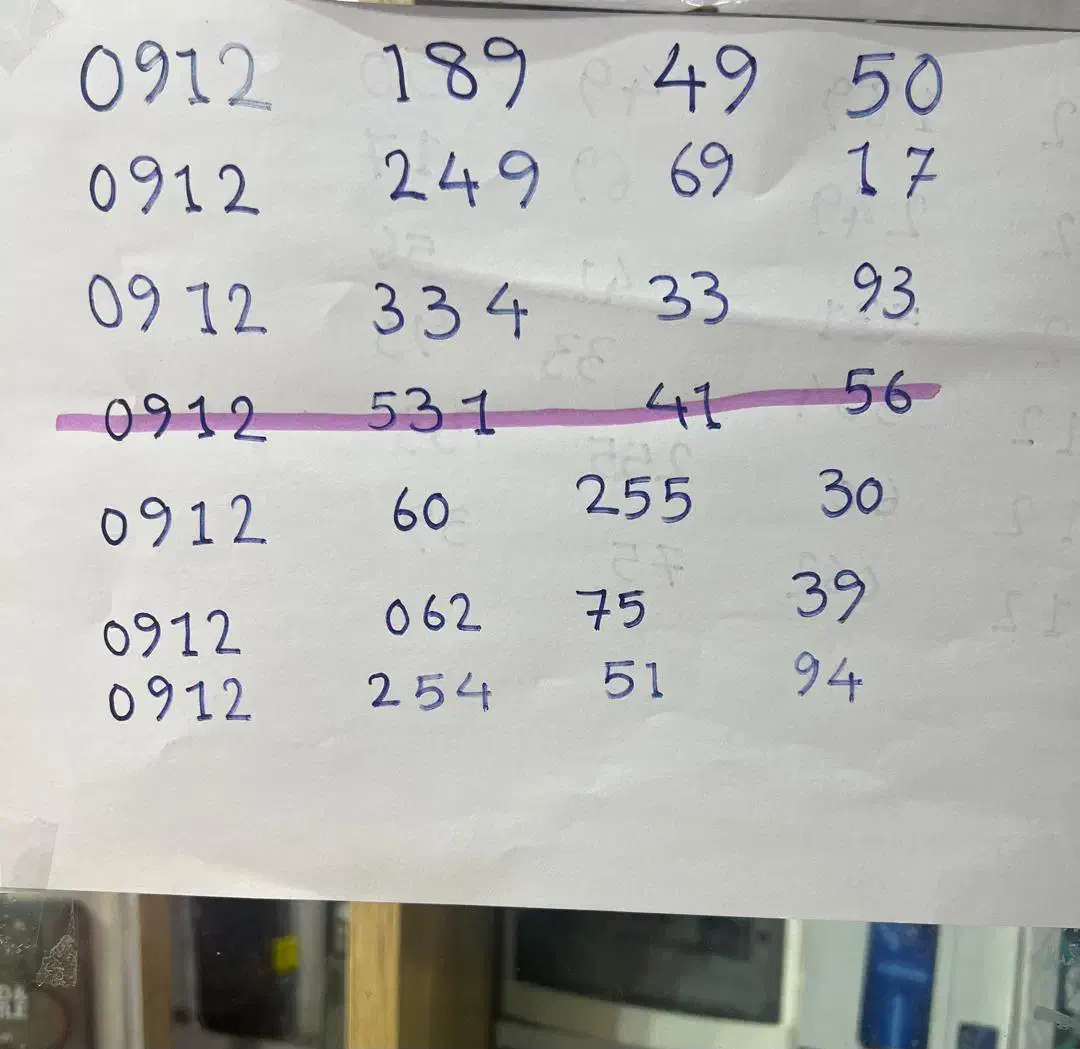 0912 189 49 50
0912 249 69 17
0912 334 33 93
0912 531 41 56
0912 60 255 30
0912 062 75 39
0912 254 51 94